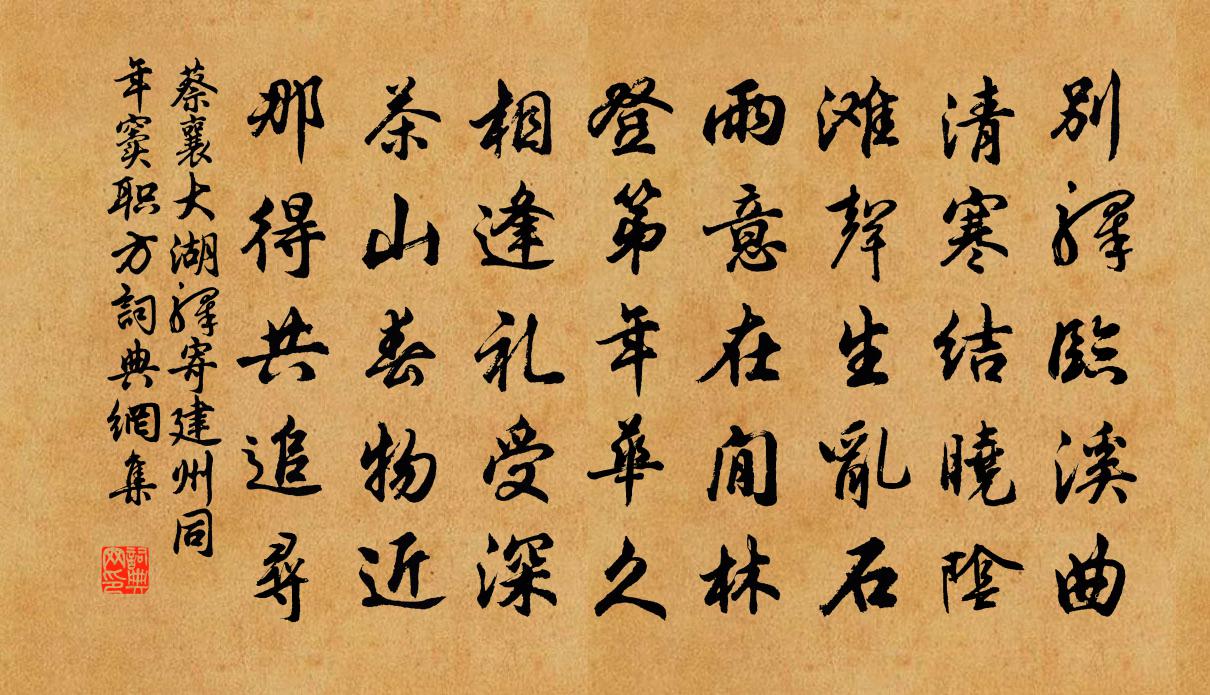 别驛臨溪曲
清寒结曉陰
滩聲生亂石
雨意在閒林
登第年華久
相逢礼受深
茶山春物近
那得共追尋
蔡襄大湖驛寄建州同
年窦职方詞典網集
詞典网印